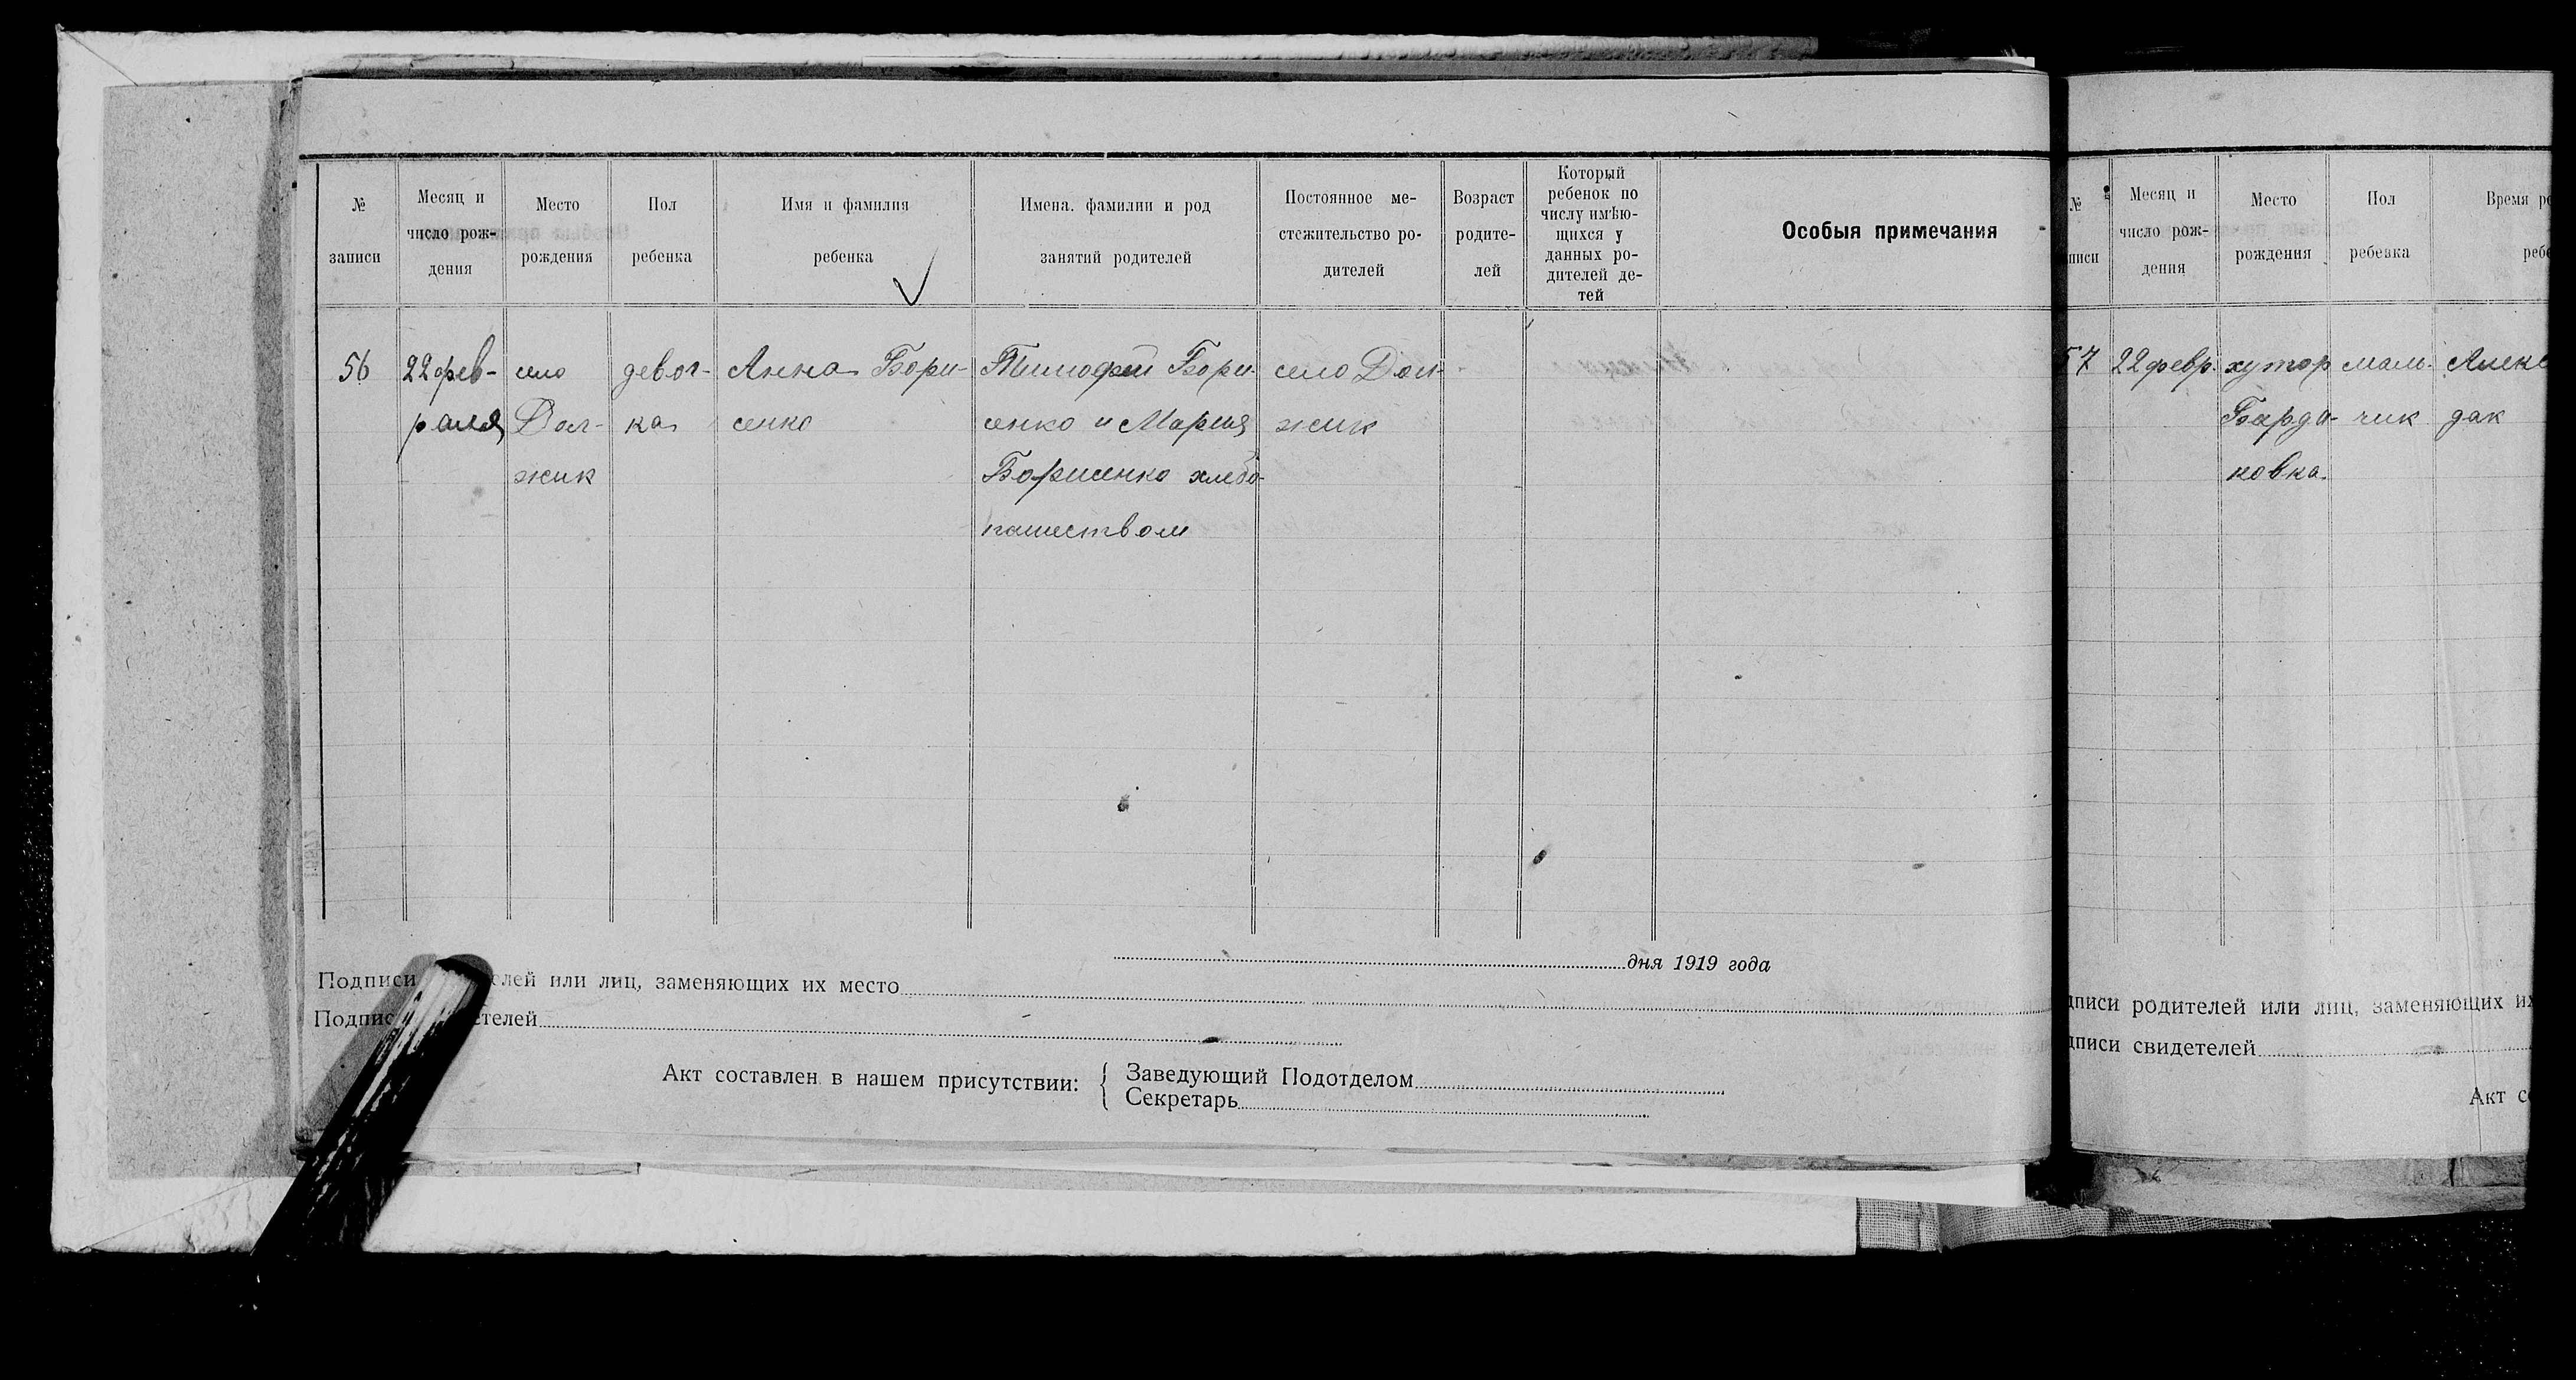 №
записи
Месяц и
число рож-
дения
Место
рождения
Пол
ребенка
Имя и фамилия
ребенка
Имена. фамилии и род
занятий родителей
Постоянное ме-
стожительство ро-
дителей
Возраст
родите-
лей
Который
ребенок по
числу имѣю-
щихся у
данных ро-
дителей де-
тей
Особыя примечания
56
22 фев-
раля
село
Дол-
жик
девоч-
ка
Анна Бори-
сенко
Тимофей Бори-
сенко и Мария
Борисенко хлебо-
пашеством
село Дол-
жик
дня 1919 года
Подписи елей или лиц, заменяющих их место
Подпис етелей
Акт составлен в нашем присутствии:
Заведующий Подотделом
Секретарь
№
писи
Месяц и
число рож-
дения
Место
рождения
Пол
ребенка
Время ро
ребе
57
22 февр.
хутор
Барда-
ковка
маль-
чик
Алекс
дак
дписи родителей или лиц, заменяющих их
дписи свидетелей
Акт со